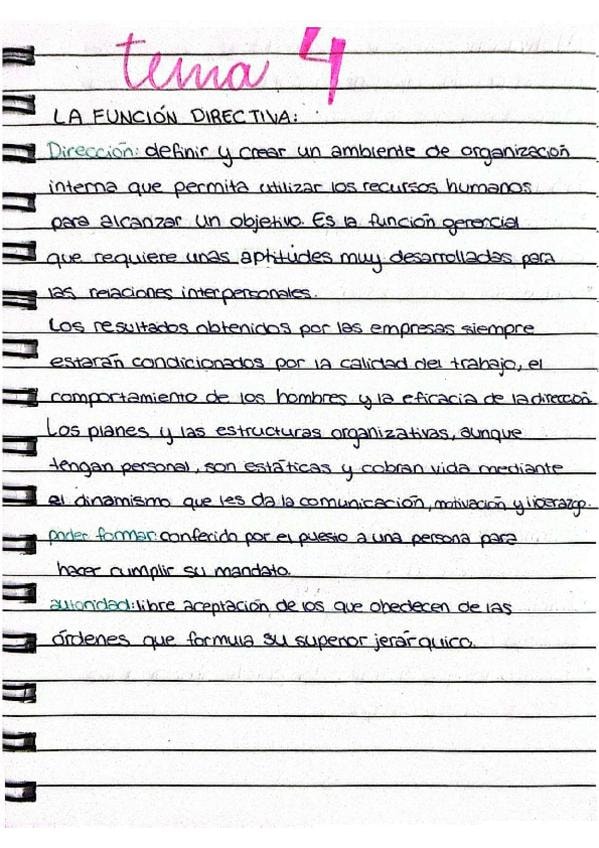 tema 4
LA FUNCIÓN DIRECTIVA:
Dirección: definir y crear un ambiente de organización
interna que permita utilizar los recursos humanos
para alcanzar un objetivo. Es la función gerencial
que requiere unas aptitudes muy desarrolladas para
las relaciones interpersonales.
Los resultados obtenidos por las empresas siempre
estarán condicionados por la calidad del trabajo, el
comportamiento de los hombres y la eficacia de la dirección.
Los planes y las estructuras organizativas, aunque
tengan personal, son estáticas y cobran vida mediante
el dinamismo que les da la comunicación, motivación y liderazgo.
poder formar: conferido por el puesto a una persona para
hacer cumplir su mandato.
autoridad: libre aceptación de los que obedecen de las
órdenes que formula su superior jerárquico.